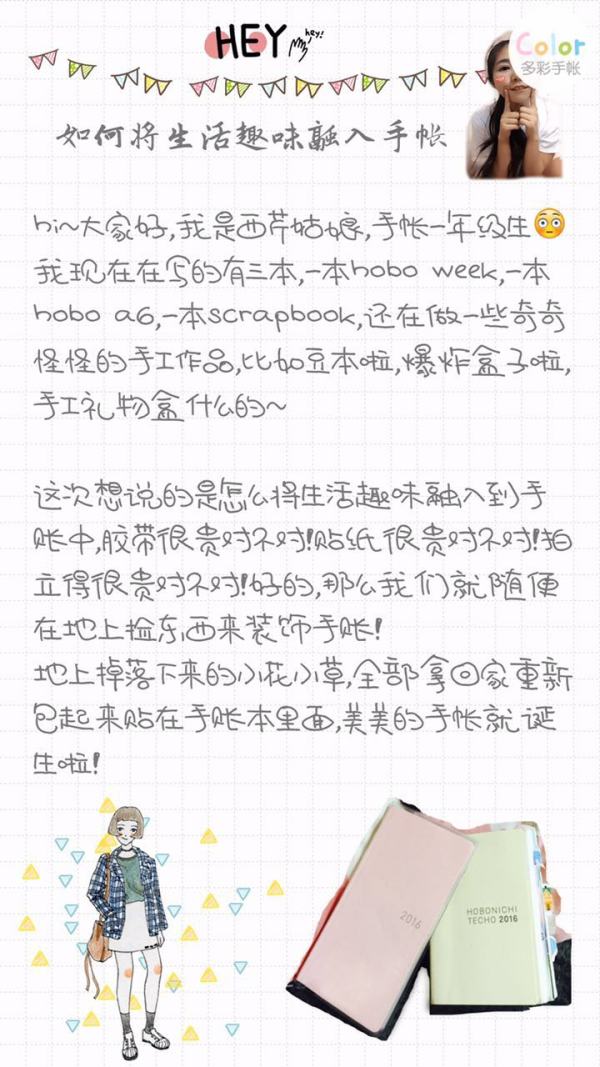 HEY
hey!
Color
多彩手帐
如何将生活趣味融入手帐
hi~大家好,我是西芹姑娘,手帐一年级生😳
我现在在写的有三本,一本hobo week,一本
hobo a6,一本scrapbook,还在做一些奇奇
怪怪的手工作品,比如豆本啦,爆炸盒子啦,
手工礼物盒什么的~
这次想说的是怎么将生活趣味融入到手
账中,胶带很贵对不对!贴纸很贵对不对!拍
立得很贵对不对!好的,那么我们就随便
在地上捡东西来装饰手账!
地上掉落下来的小花小草,全部拿回家重新
包起来贴在手账本里面,美美的手帐就诞
生啦!
2016
HOBONICHI
TECHO 2016